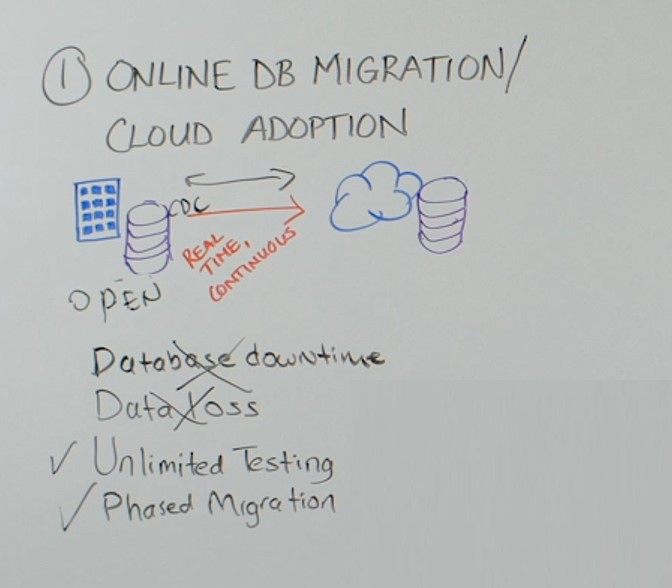 ① ONLINE DB MIGRATION/
CLOUD ADOPTION
CDC
REAL
TIME,
CONTINUOUS
OPEN
Database downtime
Data Loss
✓ Unlimited Testing
✓ Phased Migration